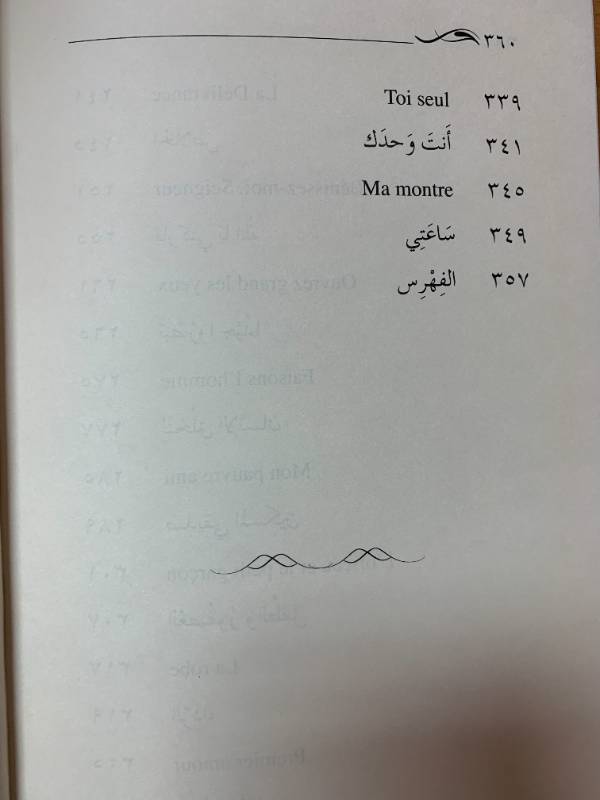 ٣٦٠
Toi seul ٣٣٩
أَنتَ وَحدَك ٣٤١
Ma montre ٣٤٥
سَاعَتِي ٣٤٩
الفِهْرِس ٣٥٧